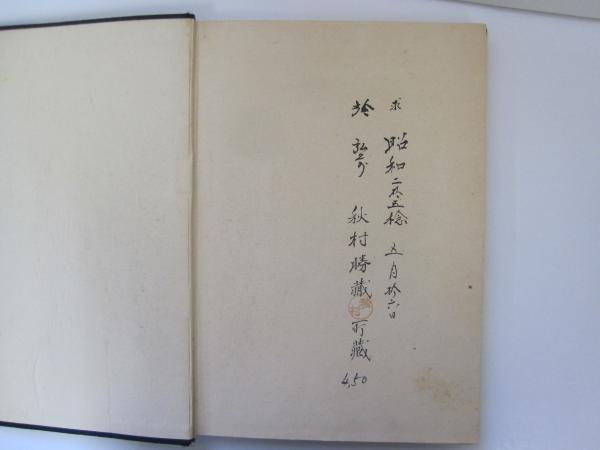 求 昭和二十五稔 五月拾六日
於 弘前 秋村勝蔵 所蔵
秋村
4,50